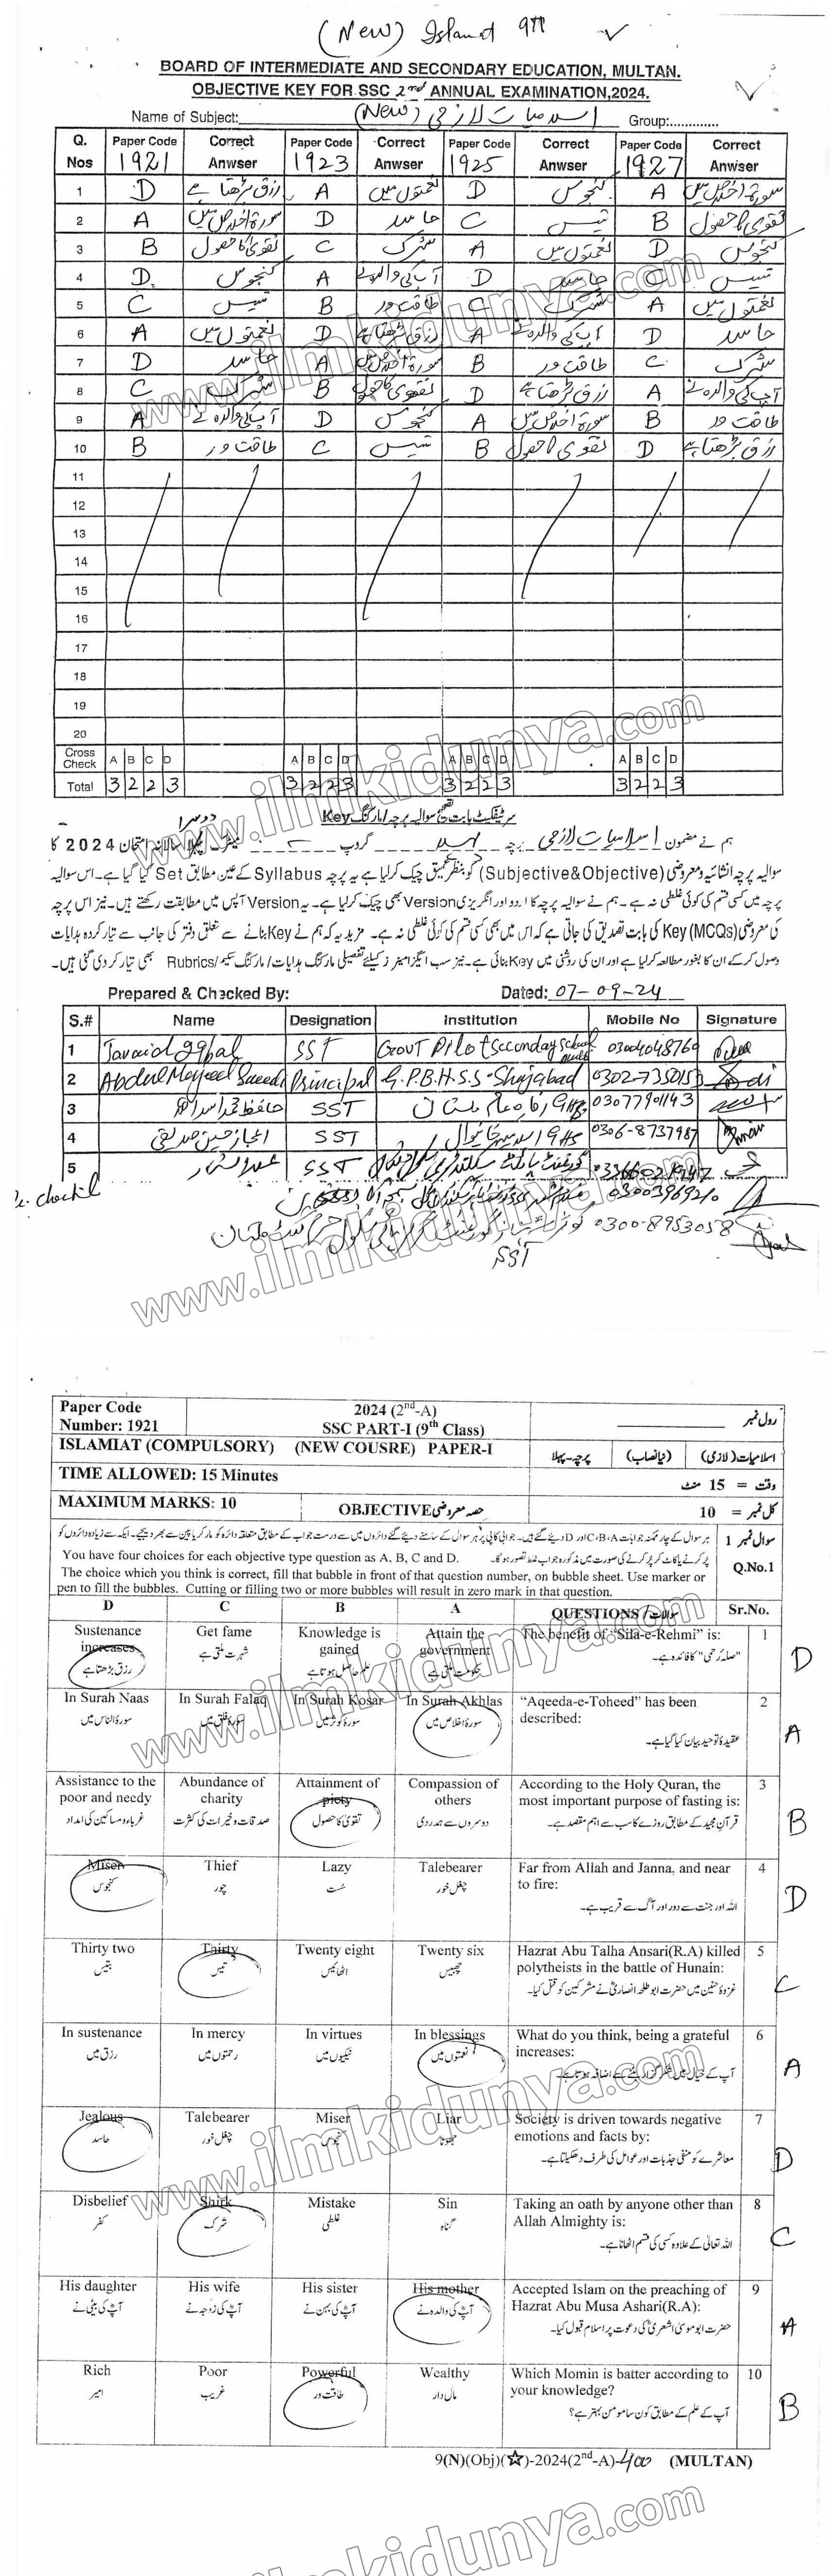 (New) Islamiat 9th
BOARD OF INTERMEDIATE AND SECONDARY EDUCATION, MULTAN.
OBJECTIVE KEY FOR SSC 2nd ANNUAL EXAMINATION,2024.
Name of Subject: اسلامیات لازمی (New) Group:.............
Q. Nos Paper Code 1921 Correct Anwser Paper Code 1923 Correct Anwser Paper Code 1925 Correct Anwser Paper Code 1927 Correct Anwser
1 D رزق بڑھتا ہے A نعمتوں میں D کنجوس A سورۃ اخلاص میں
2 A سورۃ اخلاص میں D حاسد C تیس B تقویٰ کا حصول
3 B تقویٰ کا حصول C شرک A نعمتوں میں D کنجوس
4 D. کنجوس A آپ کی والدہ نے D حاسد C تیس
5 C تیس B طاقت ور C شرک A نعمتوں میں
6 A نعمتوں میں D رزق بڑھتا ہے A آپ کی والدہ نے D حاسد
7 D حاسد A سورۃ اخلاص میں B طاقت ور C شرک
8 C شرک B تقویٰ کا حصول D رزق بڑھتا ہے A آپ کی والدہ نے
9 A آپ کی والدہ نے D کنجوس A سورۃ اخلاص میں B طاقت ور
10 B طاقت ور C تیس B تقویٰ کا حصول D رزق بڑھتا ہے
11
12
13
14
15
16
17
18
19
20
Cross Check A B C D A B C D A B C D A B C D
Total 3 2 2 3 3 2 2 3 3 2 2 3 3 2 2 3
سرٹیفکیٹ بابت تصحیح سوالیہ پرچہ/مارکنگ Key
ہم نے مضمون اسلامیات لازمی پرچہ گروپ میٹرک سالانہ امتحان 2024 کا
سوالیہ پرچہ انشائیہ و معروضی (Subjective&Objective) کو بنظر عمیق چیک کر لیا ہے یہ پرچہ Syllabus کے عین مطابق Set کیا گیا ہے۔ اس سوالیہ
پرچہ میں کسی قسم کی کوئی غلطی نہ ہے۔ ہم نے سوالیہ پرچہ کا اردو اور انگریزی Version بھی چیک کر لیا ہے۔ یہ Version آپس میں مطابقت رکھتے ہیں۔ نیز اس پرچہ
کی معروضی (MCQs) Key کی بابت تصدیق کی جاتی ہے کہ اس میں بھی کسی قسم کی کوئی غلطی نہ ہے۔ مزید یہ کہ ہم نے Key بنانے سے متعلق دفتر کی جانب سے تیار کردہ ہدایات
وصول کر کے ان کا بغور مطالعہ کر لیا ہے اور ان کی روشنی میں Key بنائی ہے۔ نیز سب ایگزامینرز کیلئے تفصیلی مارکنگ ہدایات/مارکنگ سکیم/Rubrics بھی تیار کر دی گئی ہیں۔
Prepared & Checked By: Dated: 07-09-24
S.# Name Designation Institution Mobile No Signature
1 Javaid Iqbal SST Govt Pilot Secondary School 03004048760
2 Abdul Majeed Saeedi Principal G.P.B.H.S.S Shujabad
3 SST 03077901143
4 اعجاز حسین صدیقی SST 0306-8737987
5 عبدالستار SST
03003969210
0300-8953058
SST
Paper Code Number: 1921 2024 (2nd-A) SSC PART-I (9th Class) رول نمبر
ISLAMIAT (COMPULSORY) (NEW COUSRE) PAPER-I اسلامیات(لازمی) (نیا نصاب) پرچہ-پہلا
TIME ALLOWED: 15 Minutes وقت = 15 منٹ
MAXIMUM MARKS: 10 OBJECTIVE حصہ معروضی کل نمبر = 10
سوال نمبر 1 ہر سوال کے چار ممکنہ جوابات C،B،A اور D دیئے گئے ہیں۔ جوابی کاپی پر ہر سوال کے سامنے دیئے گئے دائروں میں سے درست جواب کے مطابق متعلقہ دائرہ کو مارکر یا پین سے بھر دیجیے۔ ایک سے زیادہ دائروں کو
پُر کرنے یا کاٹ کر پُر کرنے کی صورت میں مذکورہ جواب غلط تصور ہو گا۔
Q.No.1 You have four choices for each objective type question as A, B, C and D.
The choice which you think is correct, fill that bubble in front of that question number, on bubble sheet. Use marker or
pen to fill the bubbles. Cutting or filling two or more bubbles will result in zero mark in that question.
D C B A QUESTIONS / سوالات Sr.No.
Sustenance increases Get fame Knowledge is gained Attain the government The benefit of "Sila-e-Rehmi" is: 1 D
رزق بڑھتا ہے شہرت ملتی ہے علم حاصل ہوتا ہے حکومت ملتی ہے "صلہ رحمی" کا فائدہ ہے۔
In Surah Naas In Surah Falaq In Surah Kosar In Surah Akhlas "Aqeeda-e-Toheed" has been described: 2 A
سورۃ الناس میں سورۃ فلق میں سورۃ کوثر میں سورۃ اخلاص میں عقیدۂ توحید بیان کیا گیا ہے۔
Assistance to the poor and needy Abundance of charity Attainment of piety Compassion of others According to the Holy Quran, the most important purpose of fasting is: 3 B
غرباء و مساکین کی امداد صدقات و خیرات کی کثرت تقویٰ کا حصول دوسروں سے ہمدردی قرآن مجید کے مطابق روزے کا سب سے اہم مقصد ہے۔
Miser Thief Lazy Talebearer Far from Allah and Janna, and near to fire: 4 D
کنجوس چور سُست چغل خور اللہ اور جنت سے دور اور آگ سے قریب ہے۔
Thirty two Thirty Twenty eight Twenty six Hazrat Abu Talha Ansari(R.A) killed polytheists in the battle of Hunain: 5 C
بتیس تیس اٹھائیس چھبیس غزوۂ حنین میں حضرت ابوطلحہ انصاریؓ نے مشرکین کو قتل کیا۔
In sustenance In mercy In virtues In blessings What do you think, being a grateful increases: 6 A
رزق میں رحمتوں میں نیکیوں میں نعمتوں میں آپ کے خیال میں شکر گزار بننے سے اضافہ ہوتا ہے۔
Jealous Talebearer Miser Liar Society is driven towards negative emotions and facts by: 7 D
حاسد چغل خور کنجوس جھوٹا معاشرے کو منفی جذبات اور عوامل کی طرف دھکیلتا ہے۔
Disbelief Shirk Mistake Sin Taking an oath by anyone other than Allah Almighty is: 8 C
کفر شرک غلطی گناہ اللہ تعالیٰ کے علاوہ کسی کی قسم اٹھانا ہے۔
His daughter His wife His sister His mother Accepted Islam on the preaching of Hazrat Abu Musa Ashari(R.A): 9 A
آپؓ کی بیٹی نے آپؓ کی زوجہ نے آپؓ کی بہن نے آپؓ کی والدہ نے حضرت ابو موسیٰ اشعریؓ کی دعوت پر اسلام قبول کیا۔
Rich Poor Powerful Wealthy Which Momin is batter according to your knowledge? 10 B
امیر غریب طاقت ور مال دار آپ کے علم کے مطابق کون سا مومن بہتر ہے؟
9(N)(Obj)(☆)-2024(2nd-A)-400 (MULTAN)
www.ilmkidunya.com